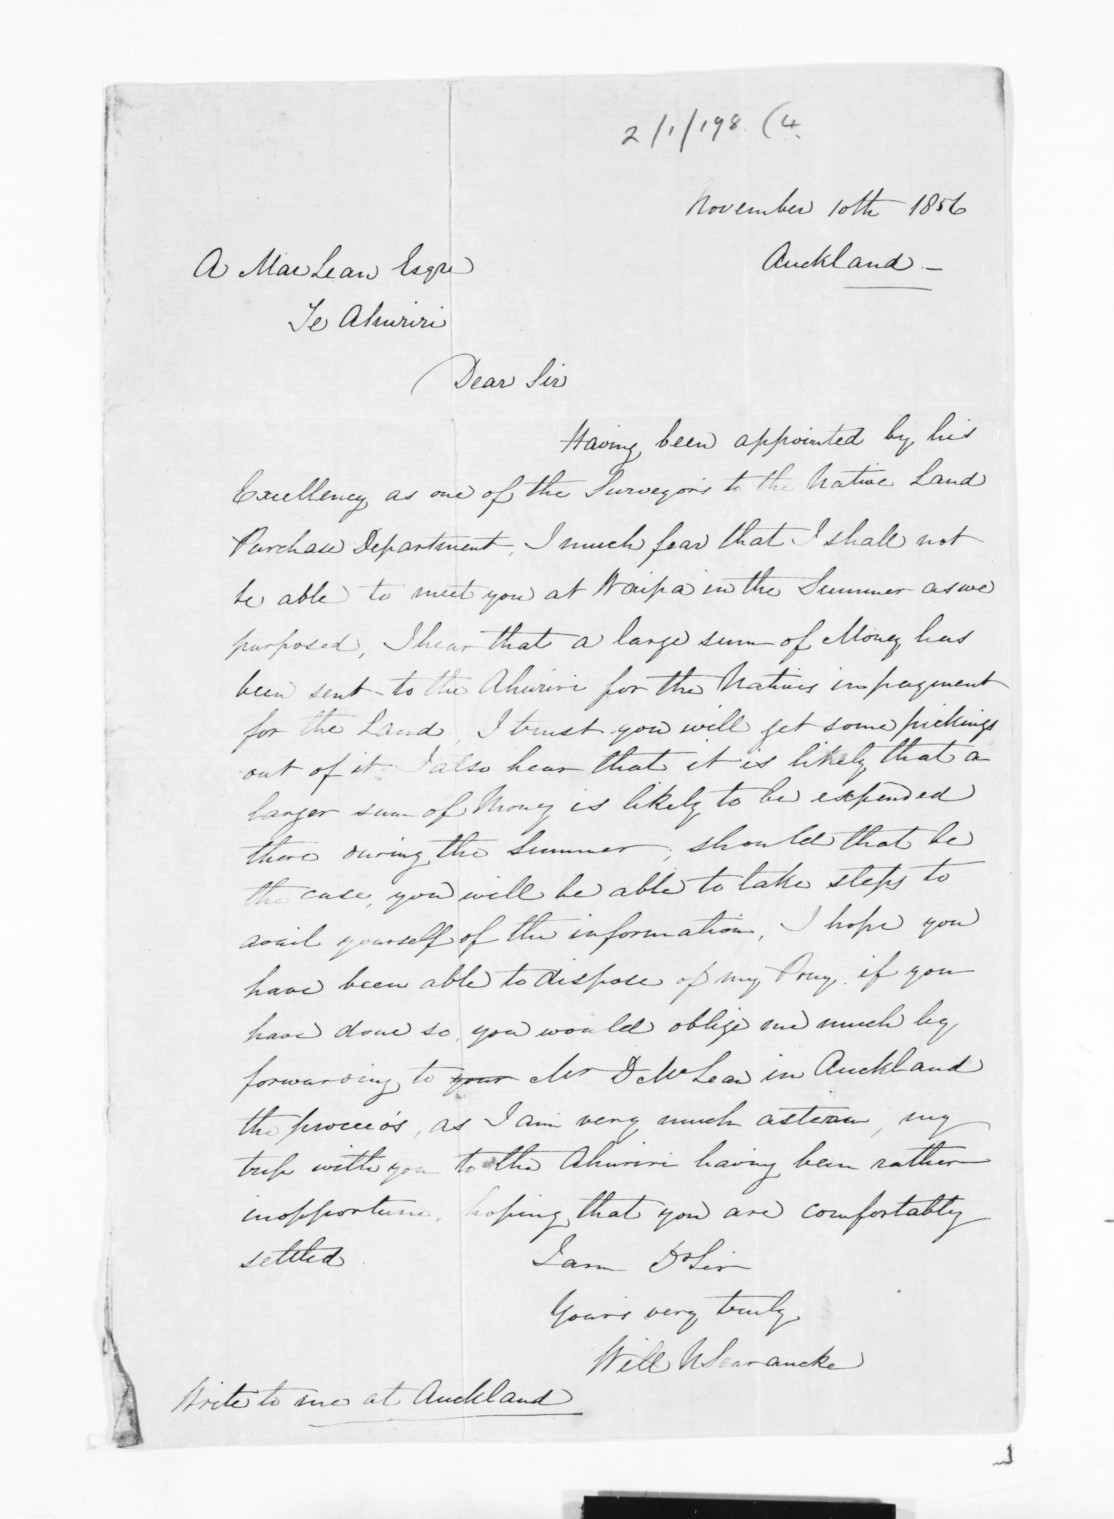 2/1/198 (4.
November 10th 1856
Auckland -
A MacLean Esqre
Te Ahuriri
Dear Sir
Having been appointed by his
Excellency as one of the Surveyors to the Native Land
Purchase Department, I much fear that I shall not
be able to meet you at Waipa in the Summer as we
purposed, I hear that a large sum of Money has
been sent to the Ahuriri for the Natives in payment
for the Land, I trust you will get some pickings
out of it. I also hear that it is likely that a
larger sum of Money is likely to be expended
there during the Summer, should that be
the case, you will be able to take steps to
avail yourself of the information, I hope you
have been able to dispose of my Pony. if you
have done so, you would oblige me much by
forwarding to your Mr D McLean in Auckland
the proceeds, as I am very much, my
trip with you to the Ahuriri having been rather
inopportune, hoping that you are comfortably
settled.
I am Dr Sir
Yours very truly
Will N Searancke
Write to me at Auckland